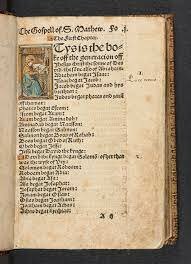 The Gospell of S. Mathew. Fo. j.
The First Chapter.
Thys is the bo-
ke off the generacion off
Jhesus Christ the sonne of Da-
vid the sonne also of Abraham.
Abraham begat Isaac:
Isaac begat Jacob:
Jacob begat Judas and hys
bre-
thren:
Judas begat phares and
of thamar:
phares begat Esrom:
Esrom begat Aram:
Aram begat Aminadab:
Aminadab begat Naasson:
Naasson begat Salmon:
Salmon begat Boos of Rahab:
Boos begat Obed of Ruth:
Obed begat Jesse:
Jesse begat David the kynge:
David the kynge begat Salomo / of her that
was the wyfe of Ury:
Salomon begat Roboam:
Roboam begat Abia:
Abia begat Asa:
Asa begat Josaphat:
Josaphat begat Joram:
Joram begat Osias:
Osias begat Joatham:
Joatham begat Achas:
Achas begat Ezechias: